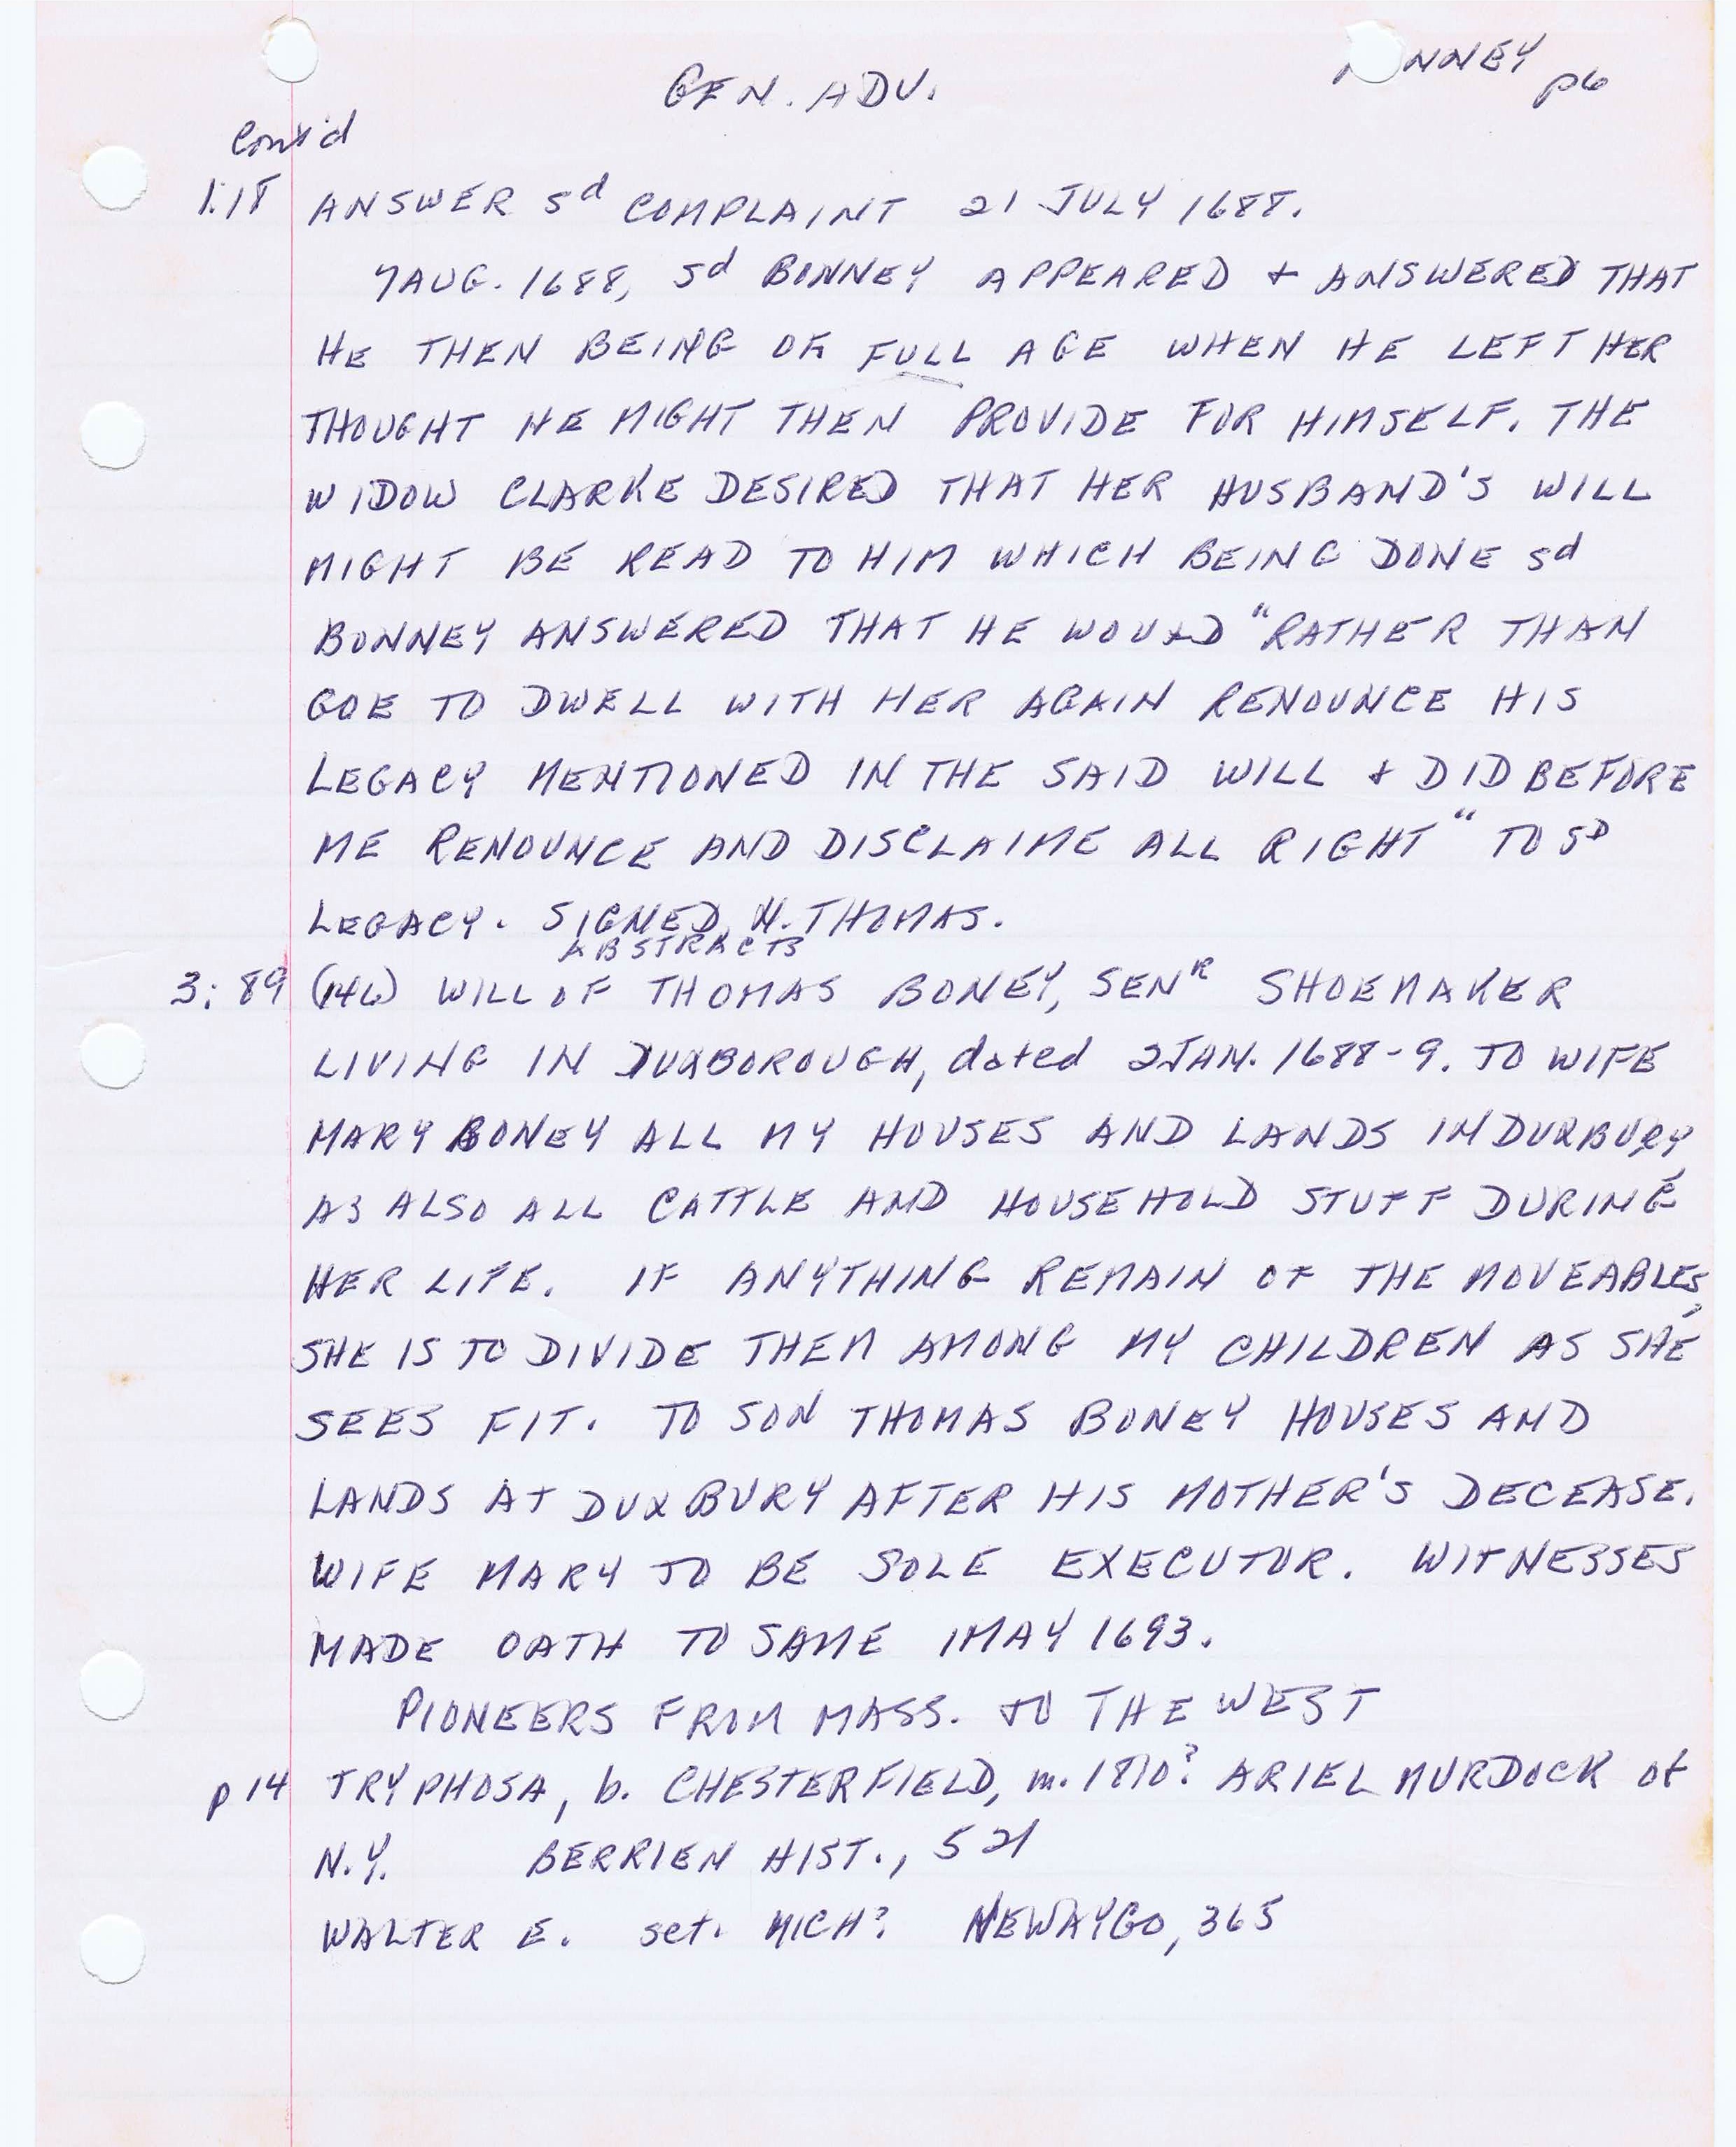 GEN. ADV.
NNEY p6
Cont'd
1:18 ANSWER sd COMPLAINT 21 JULY 1688.
7 AUG. 1688, sd BONNEY APPEARED + ANSWERED THAT
HE THEN BEING OF FULL AGE WHEN HE LEFT HER
THOUGHT HE MIGHT THEN PROVIDE FOR HIMSELF. THE
WIDOW CLARKE DESIRED THAT HER HUSBAND'S WILL
MIGHT BE READ TO HIM WHICH BEING DONE sd
BONNEY ANSWERED THAT HE WOULD "RATHER THAN
GOE TO DWELL WITH HER AGAIN RENOUNCE HIS
LEGACY MENTIONED IN THE SAID WILL + DID BEFORE
ME RENOUNCE AND DISCLAIME ALL RIGHT" TO SD
LEGACY. SIGNED, N. THOMAS.
ABSTRACTS
3:89 (146) WILL OF THOMAS BONEY, SENR SHOEMAKER
LIVING IN DUXBOROUGH, dated 2 JAN. 1688-9. TO WIFE
MARY BONEY ALL MY HOUSES AND LANDS IN DUXBURY
AS ALSO ALL CATTLE AND HOUSEHOLD STUFF DURING
HER LIFE. IF ANYTHING REMAIN OF THE MOVEABLES,
SHE IS TO DIVIDE THEM AMONG MY CHILDREN AS SHE
SEES FIT. TO SON THOMAS BONEY HOUSES AND
LANDS AT DUXBURY AFTER HIS MOTHER'S DECEASE.
WIFE MARY TO BE SOLE EXECUTOR. WITNESSES
MADE OATH TO SAME 1 MAY 1693.
PIONEERS FROM MASS. TO THE WEST
p 14 TRYPHOSA, b. CHESTERFIELD, m. 1810? ARIEL MURDOCK of
N.Y. BERRIEN HIST., 521
WALTER E. set. MICH? NEWAYGO, 365